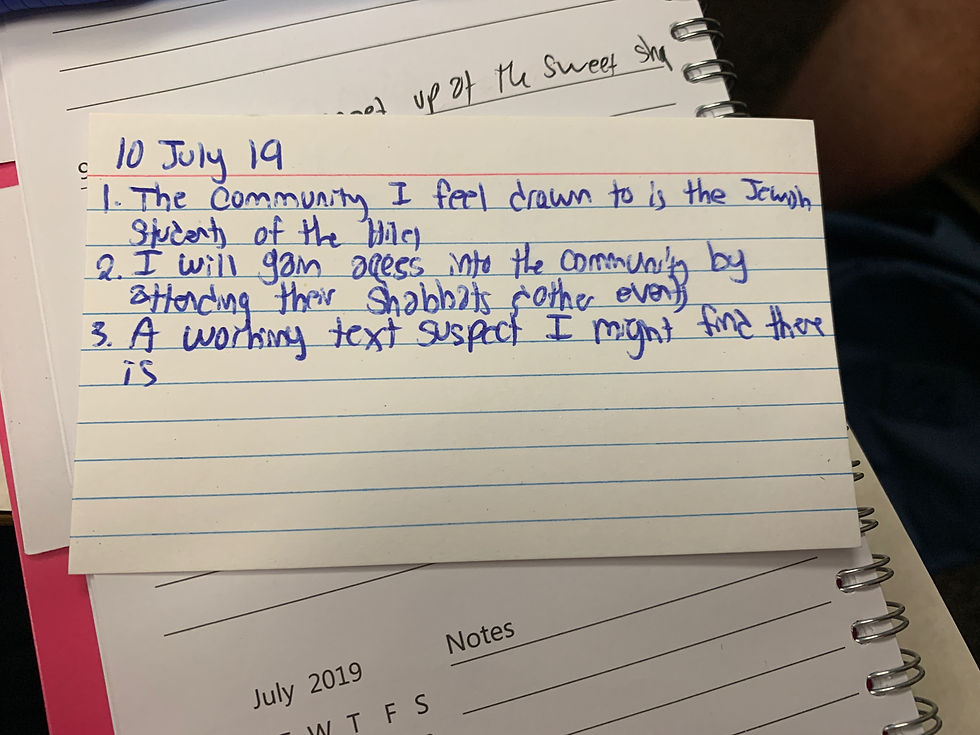 up at the sweet sha
10 July 19
1. The Community I feel drawn to is the Jewish
Students of the Hillel
2. I will gain acess into the community by
attending their Shabbats & other events
3. A working text suspect I might find there
is
Notes
July 2019
W T F S